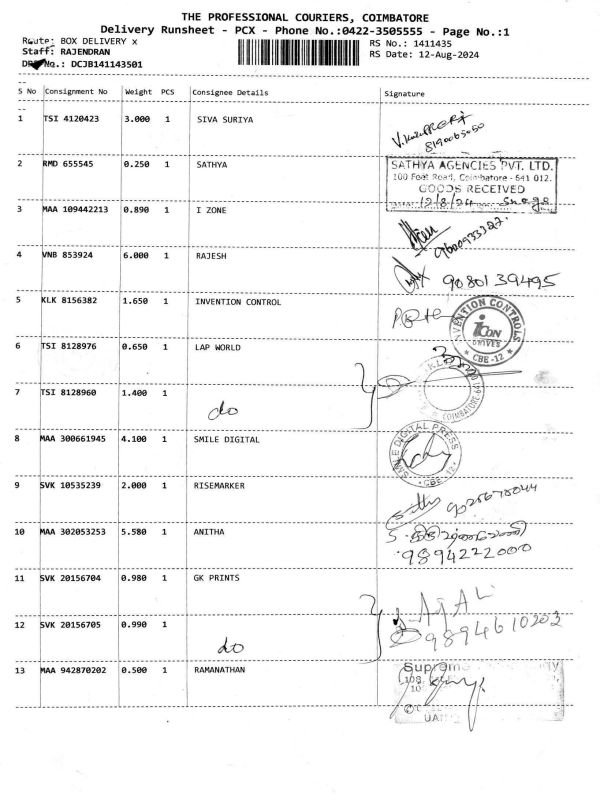 THE PROFESSIONAL COURIERS, COIMBATORE
Delivery Runsheet - PCX - Phone No.:0422-3505555 - Page No.:1
Route: BOX DELIVERY x
RS No.: 1411435
Staff: RAJENDRAN
RS Date: 12-Aug-2024
No.: DCJB141143501
S No Consignment No Weight PCS Consignee Details Signature
1 TSI 4120423 3.000 1 SIVA SURIYA
8190065050
2 RMD 655545 0.250 1 SATHYA
SATHYA AGENCIES PVT. LTD.
100 Foot Road, Coimbatore - 641 012.
GOODS RECEIVED
12/8/24
3 MAA 109442213 0.890 1 I ZONE
9600933322.
4 VNB 853924 6.000 1 RAJESH
9080139495
5 KLK 8156382 1.650 1 INVENTION CONTROL
INVENTION CONTROLS
icon
DRIVES
CBE-12
6 TSI 8128976 0.650 1 LAP WORLD
COIMBATORE-641
7 TSI 8128960 1.400 1
do
8 MAA 300661945 4.100 1 SMILE DIGITAL
SMILE DIGITAL PRESS
CBE-12
9 SVK 10535239 2.000 1 RISEMARKER
10 MAA 302053253 5.580 1 ANITHA
9894222000
11 SVK 20156704 0.980 1 GK PRINTS
12 SVK 20156705 0.990 1
do
9894610203
13 MAA 942870202 0.500 1 RAMANATHAN
Supreme